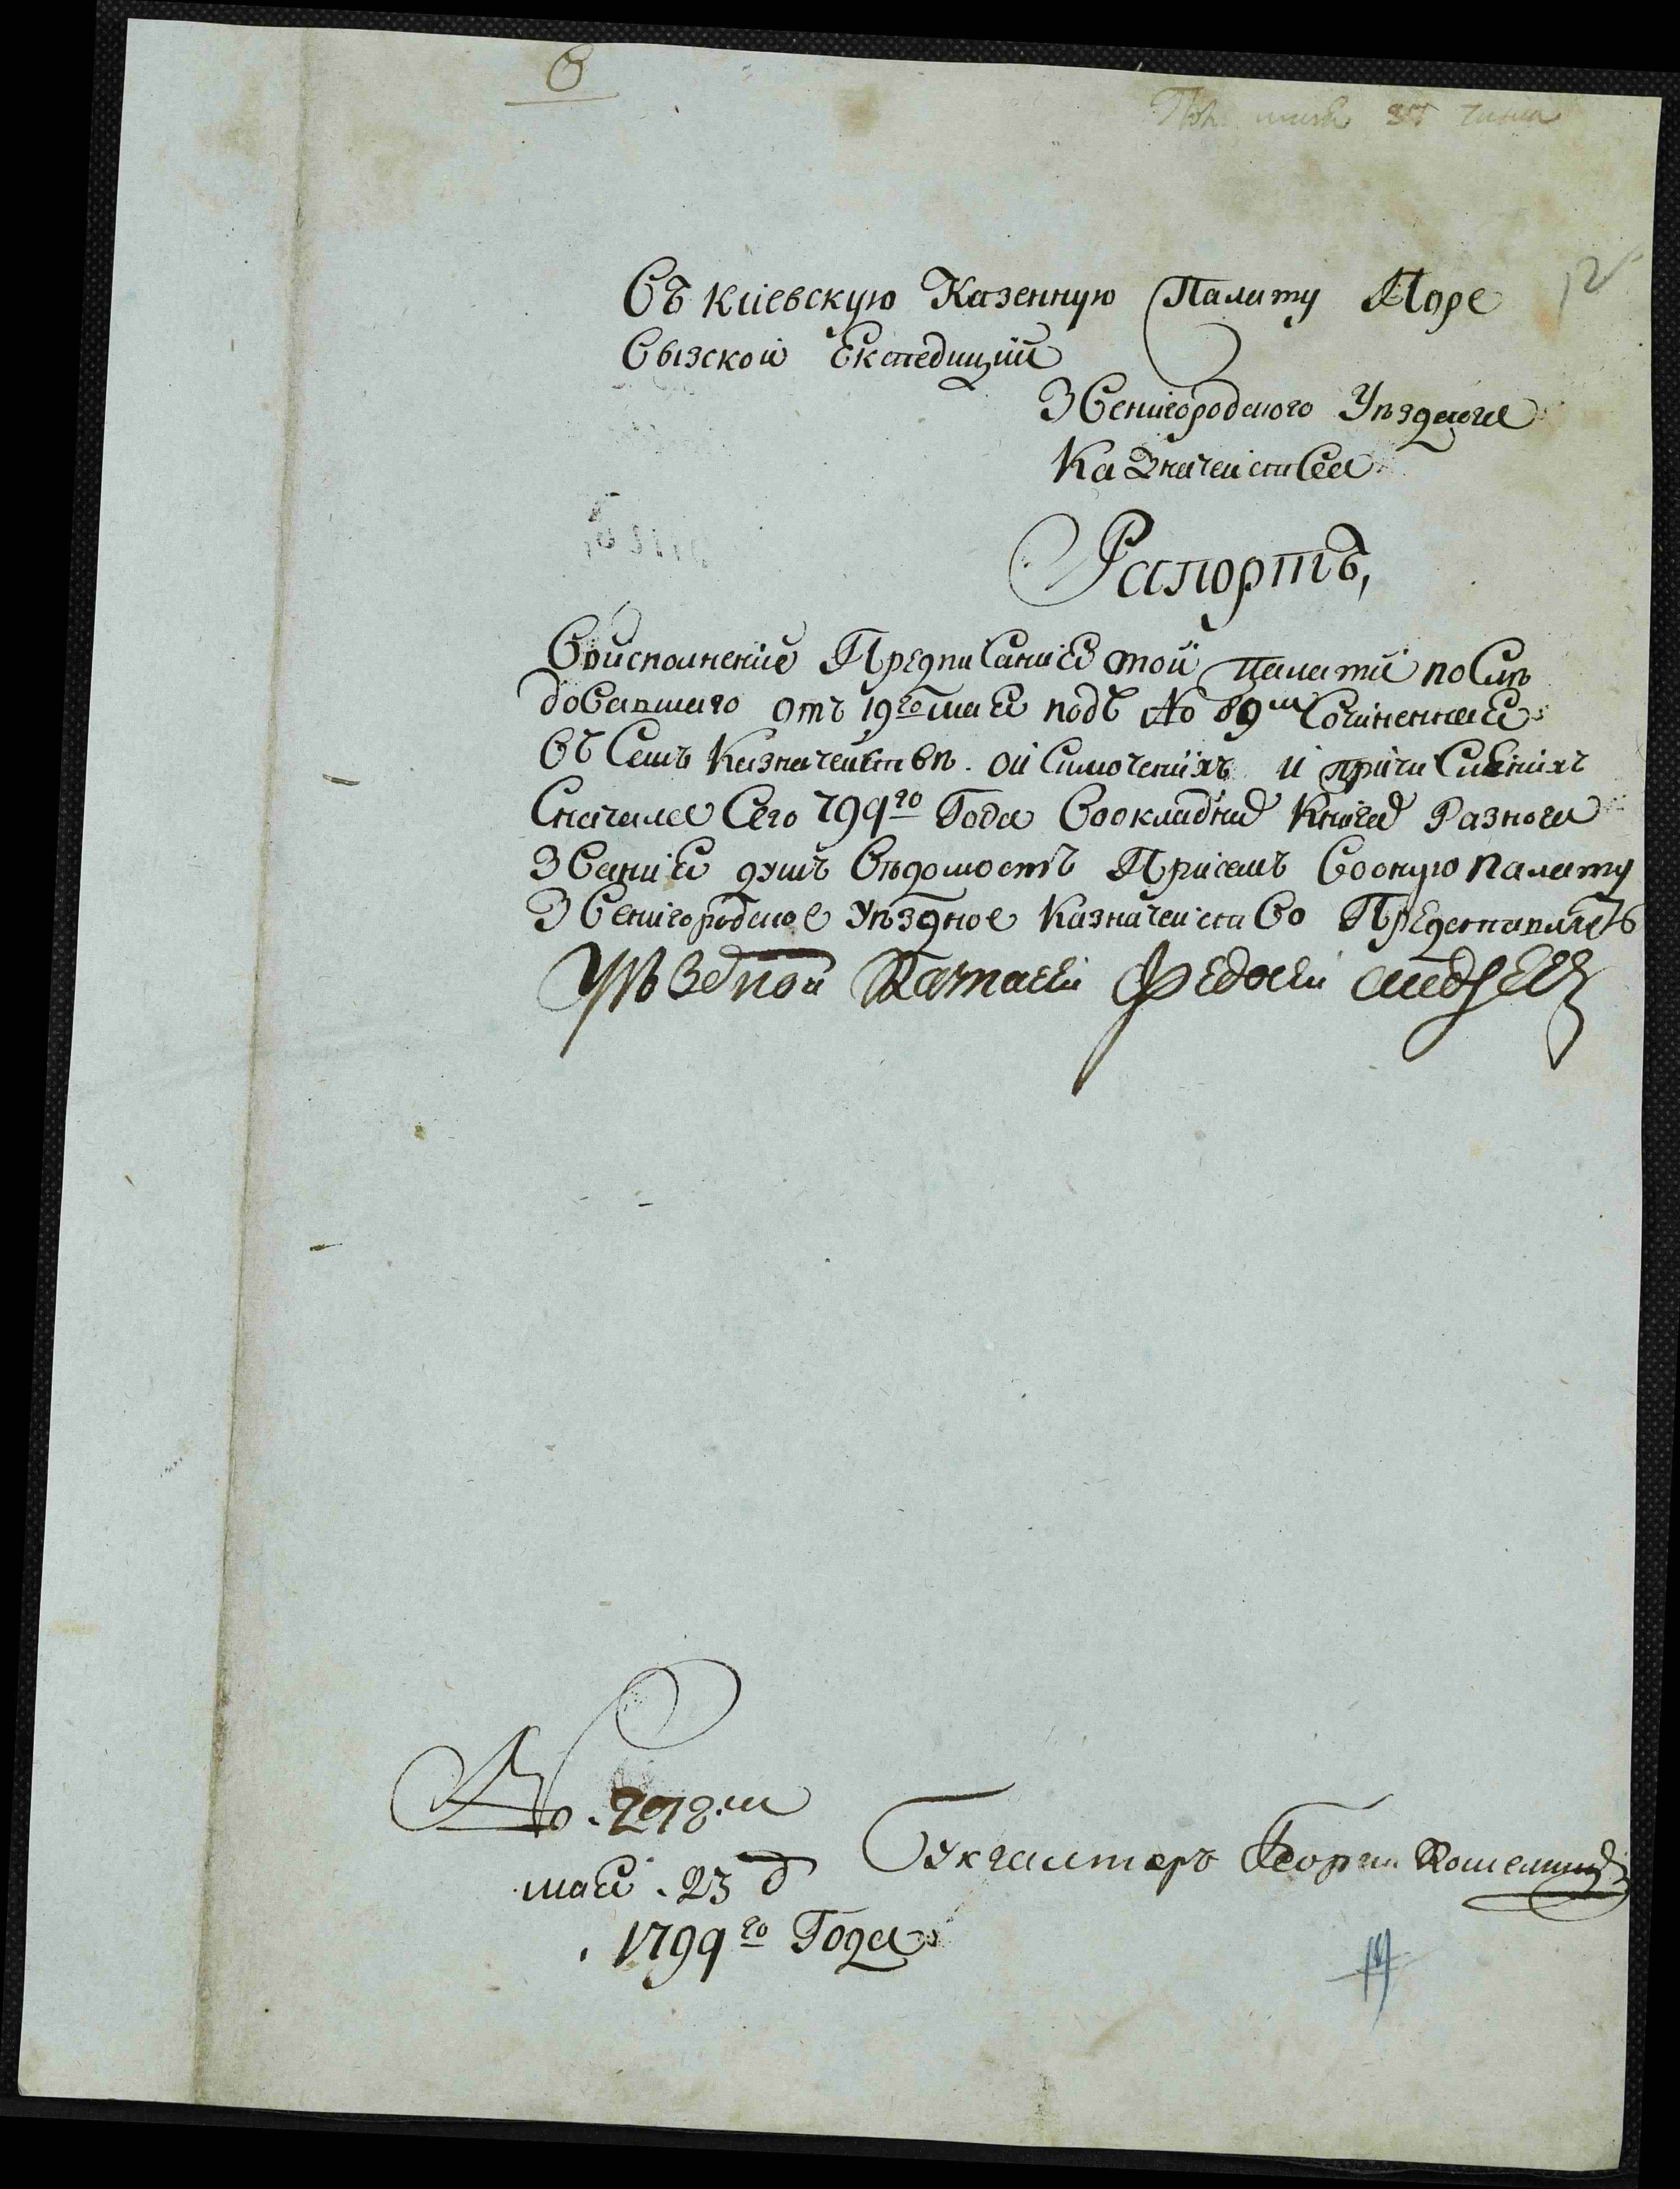 Въ Киевскую Казенную Палату По ре
визской Експедиции
Звенигородского Уѣздного
Казначейства
Рапортъ,
Воисполнение Предписания той палати послѣ
довавшаго отъ 19го мая подъ No 89м Сочиненная
въ Семъ Казначействѣ оисключенияхъ и причисленияхъ
Сначала Сего 799го Года Воокладние книги Разного
Звания душъ Вѣдомость Присемъ Вооную палату
Звенигородское Уѣздное Казначейство Представляетъ
Уѣздной Федосей
No. 278м
Бухгалтеръ Георги
мая 23 д
1799го Года